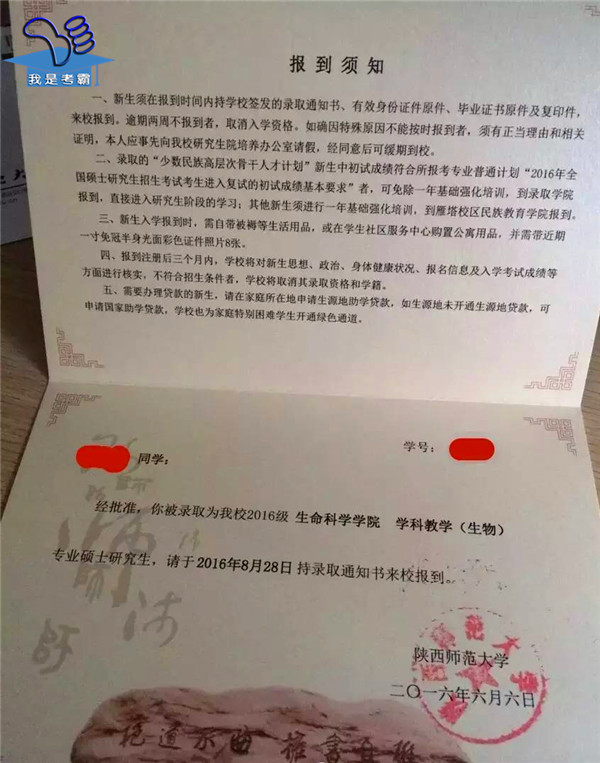 我是考霸
报到须知
一、新生须在报到时间内持学校签发的录取通知书、有效身份证件原件、毕业证书原件及复印件，
来校报到。逾期两周不报到者，取消入学资格。如确因特殊原因不能按时报到者，须有正当理由和相关
证明，本人应事先向我校研究生院培养办公室请假，经同意后可缓期到校。
二、录取的“少数民族高层次骨干人才计划”新生中初试成绩符合所报考专业普通计划“2016年全
国硕士研究生招生考试考生进入复试的初试成绩基本要求”者，可免除一年基础强化培训，到录取学院
报到，直接进入研究生阶段的学习；其他新生须进行一年基础强化培训，到雁塔校区民族教育学院报到。
三、新生入学报到时，需自带被褥等生活用品，或在学生社区服务中心购置公寓用品，并需带近期
一寸免冠半身光面彩色证件照片8张。
四、报到注册后三个月内，学校将对新生思想、政治、身体健康状况、报名信息及入学考试成绩等
方面进行核实，不符合招生条件者，学校将取消其录取资格和学籍。
五、需要办理贷款的新生，请在家庭所在地申请生源地助学贷款，如生源地未开通生源地贷款，可
申请国家助学贷款，学校也为家庭特别困难学生开通绿色通道。
学号：
同学：
经批准，你被录取为我校2016级 生命科学学院 学科教学（生物）
专业硕士研究生，请于2016年8月28日持录取通知书来校报到。
陕西师范大学
二〇一六年六月六日